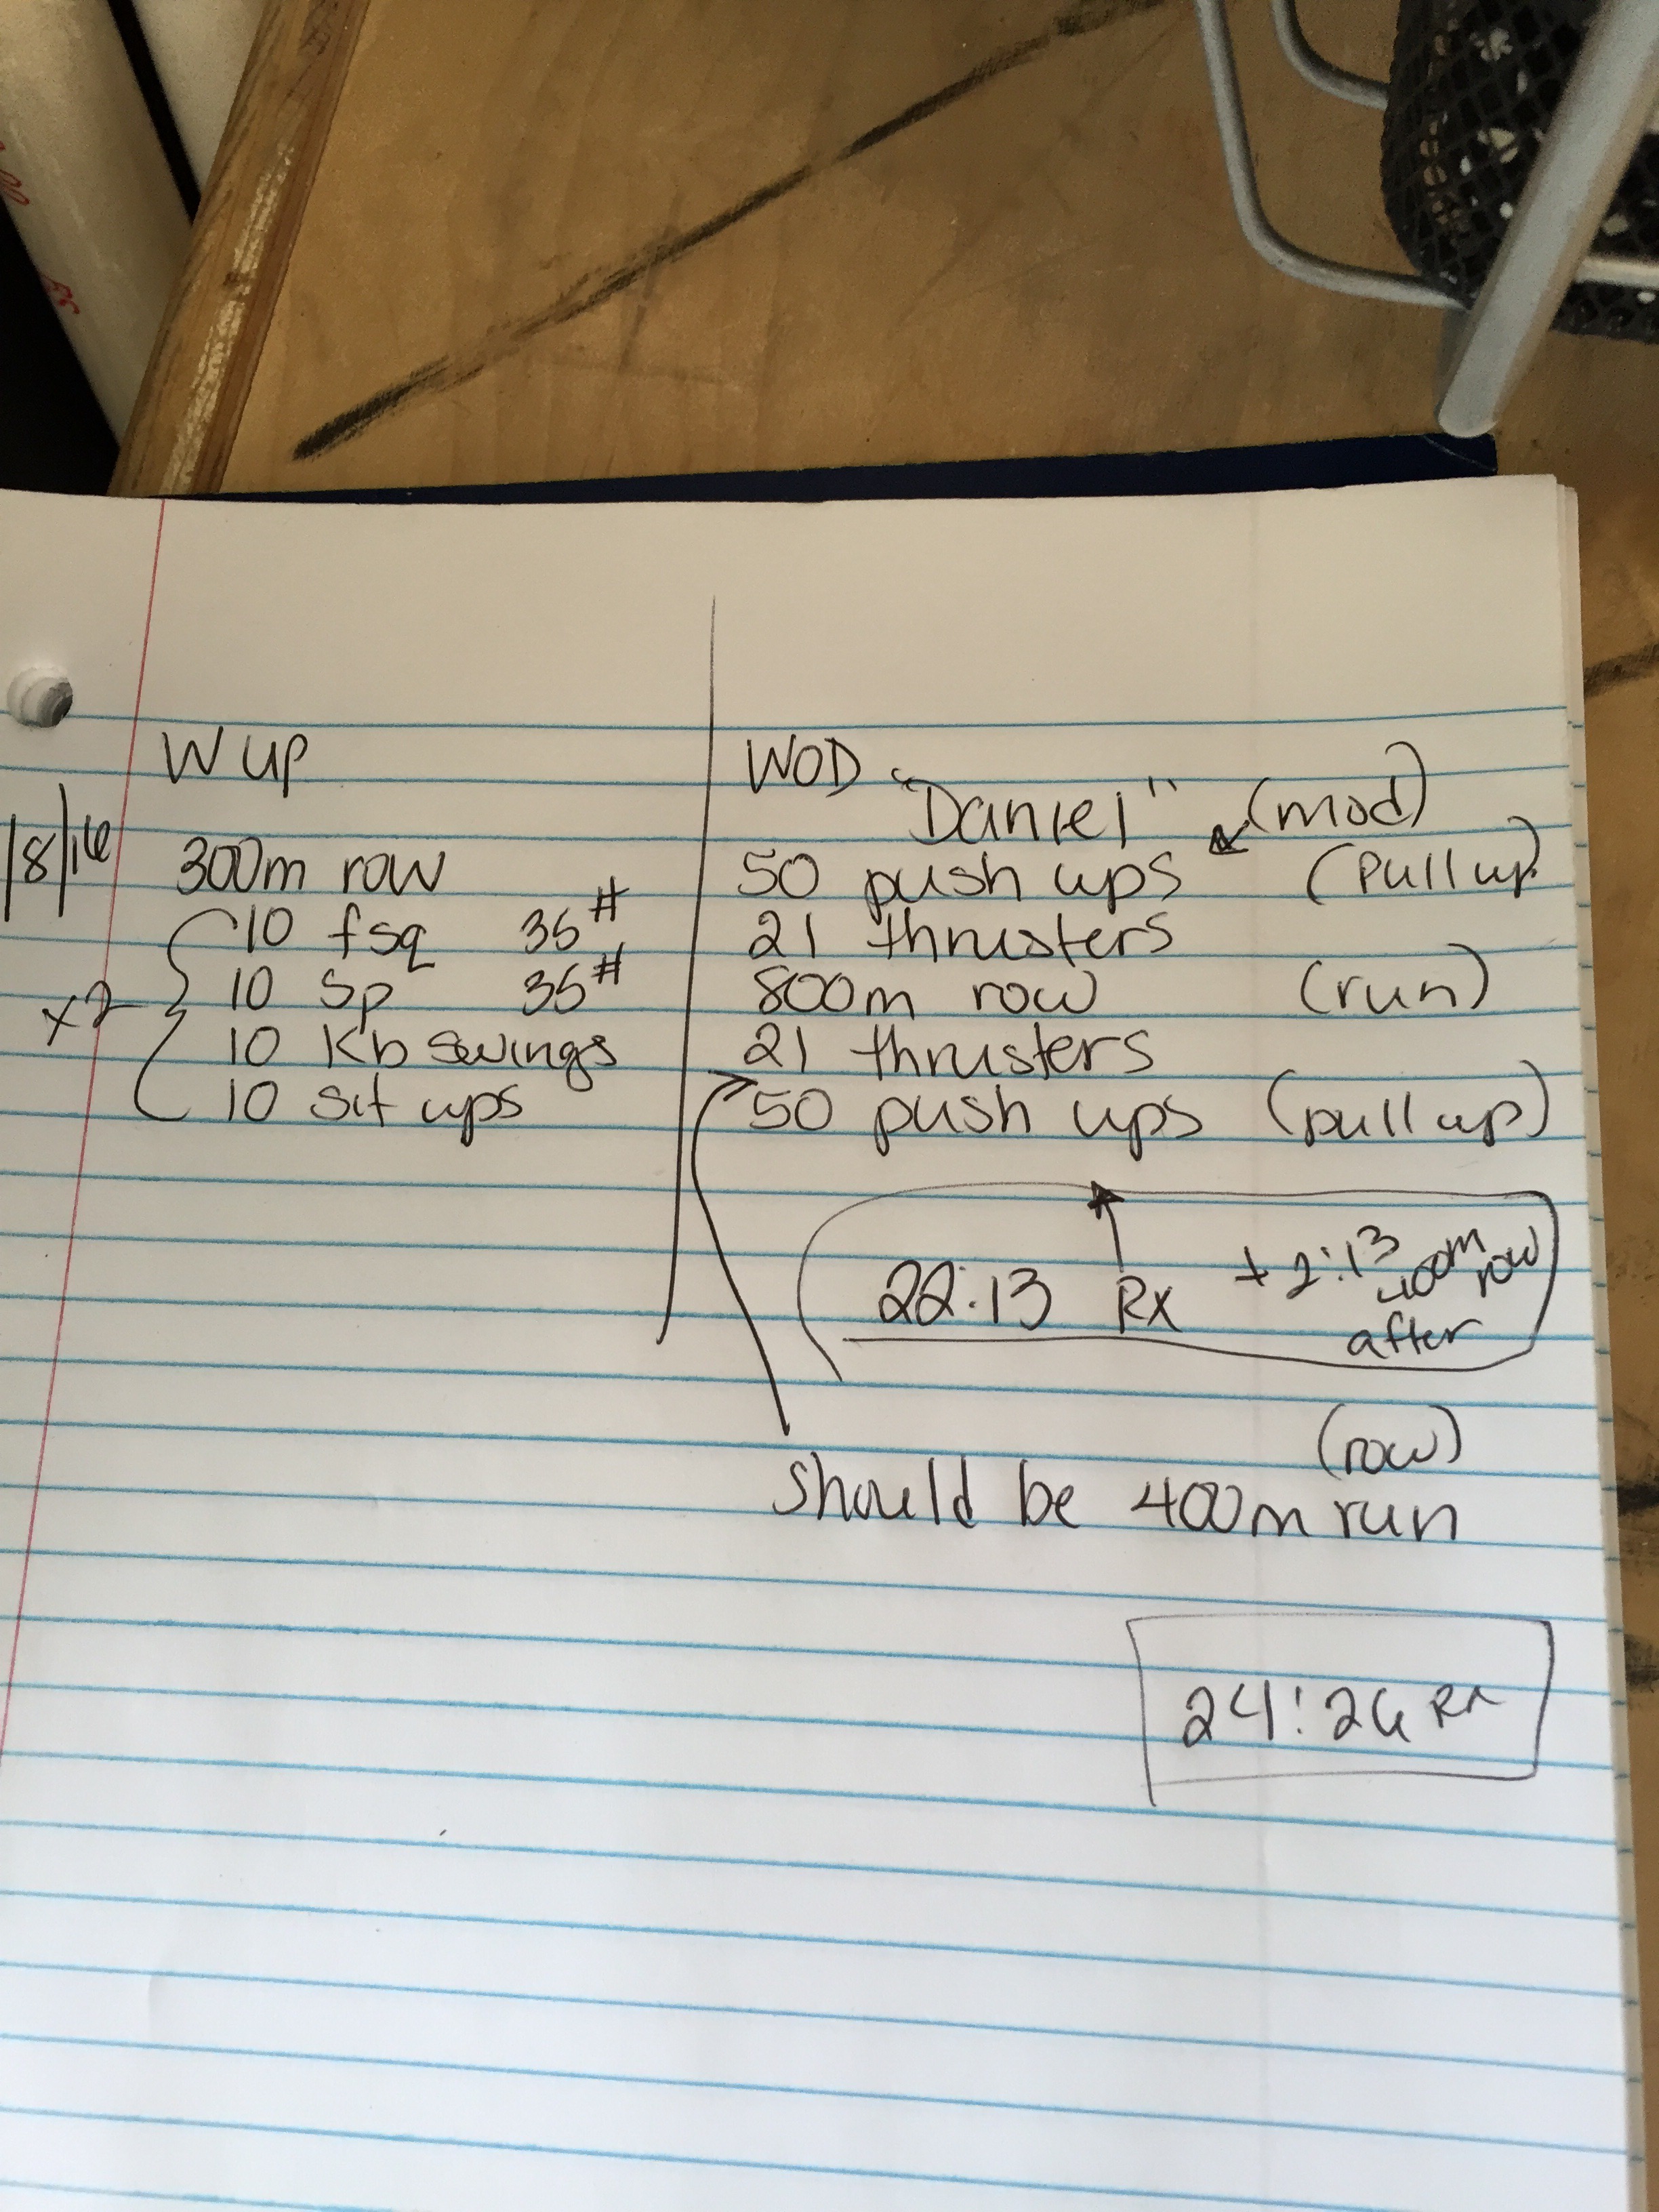 W up
/8/16
300m row
10 fsq 35#
10 Sp 35#
x2
10 Kb swings
10 sit ups
WOD
"Daniel" (mod)
50 push ups (Pull up)
21 thrusters
800m row (run)
21 thrusters
50 push ups (pull up)
22:13 Rx + 2:13 400m row
after
(row)
should be 400m run
24:26 Rx